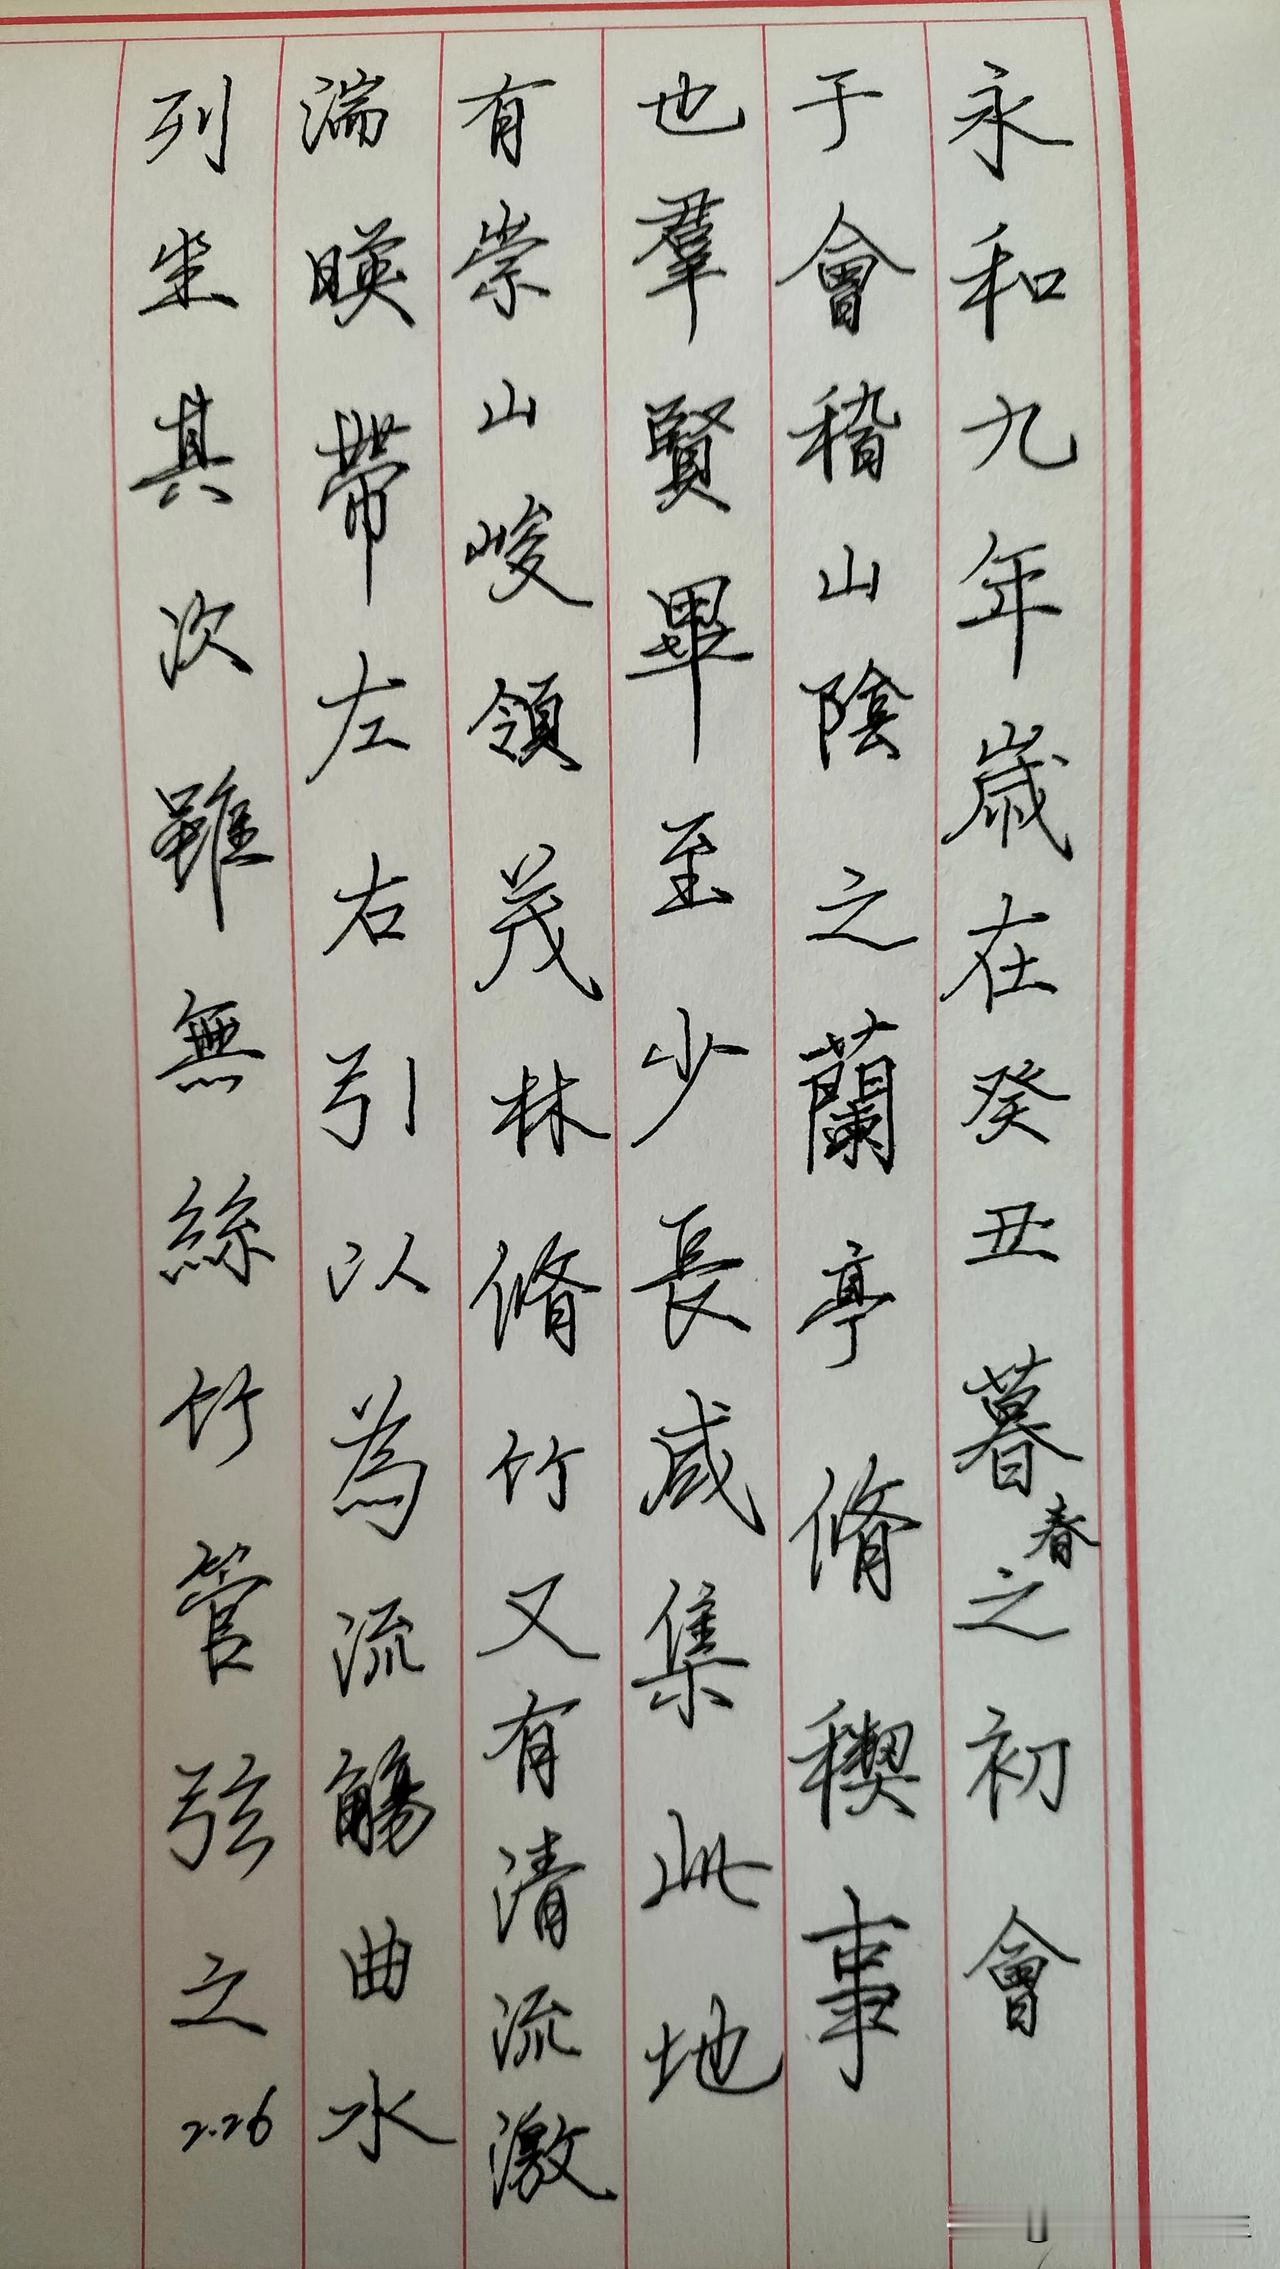 永和九年歲在癸丑暮春之初會
于會稽山陰之蘭亭脩稧事
也羣賢畢至少長咸集此地
有崇山峻領茂林脩竹又有清流激
湍暎帶左右引以為流觴曲水
列坐其次雖無絲竹管弦之
2.26